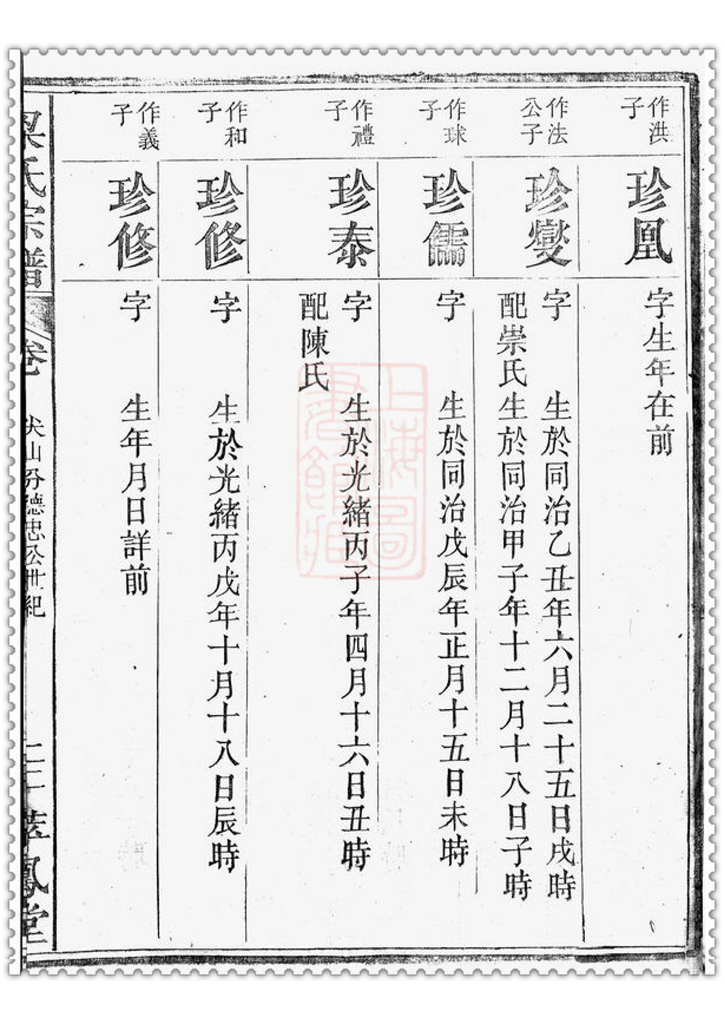 作洪子
珍凰
字生年在前
作法公子
珍燮
字 生於同治乙丑年六月二十五日戌時
配崇氏生於同治甲子年十二月十八日子時
作球子
珍儒
字 生於同治戊辰年正月十五日未時
作禮子
珍泰
字 生於光緒丙子年四月十六日丑時
配陳氏
作和子
珍修
字 生於光緒丙戊年十月十八日辰時
作義子
珍修
字 生年月日詳前
氏宗譜
卷
尖山分德忠公世紀
萃鳳堂
上海圖書館藏